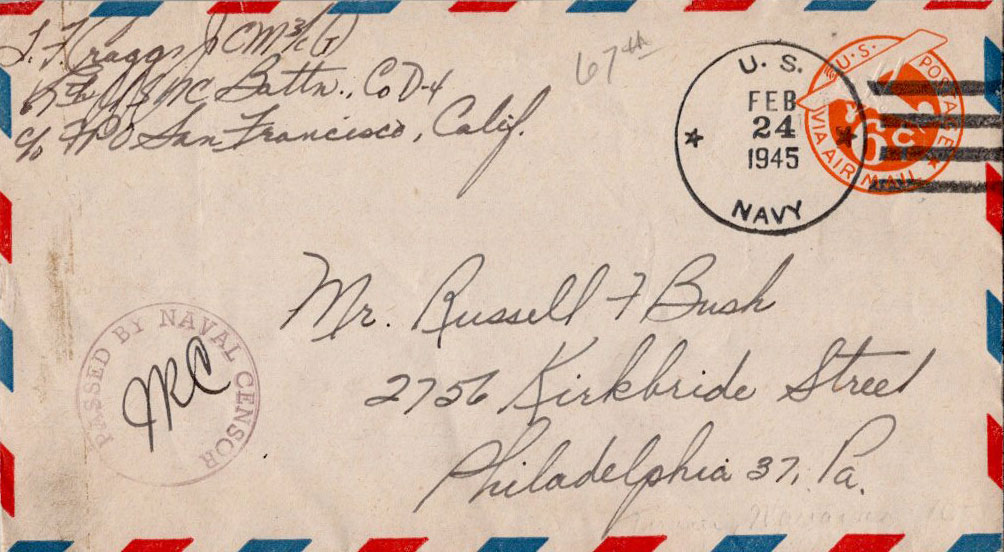 67th
CM 3/c
NC Battn., Co D-4
c/o FPO San Francisco, Calif.
U. S.
FEB
24
1945
NAVY
U.S. POSTAGE
6c
VIA AIR MAIL
Mr. Russell F Bush
2756 Kirkbride Street
Philadelphia 37, Pa.
PASSED BY NAVAL CENSOR